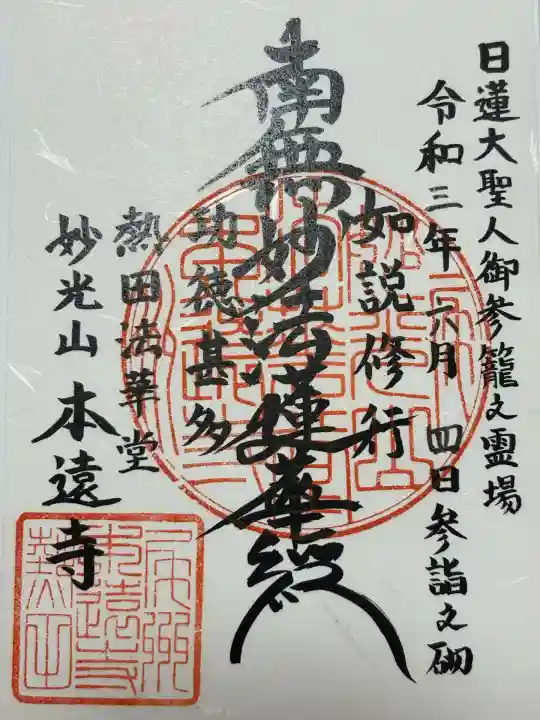 日蓮大聖人御参籠之霊場
令和三年 六月 四日参詣之砌
如説修行
南無妙法蓮華経
功徳甚多
熱田法華堂
妙光山 本遠寺